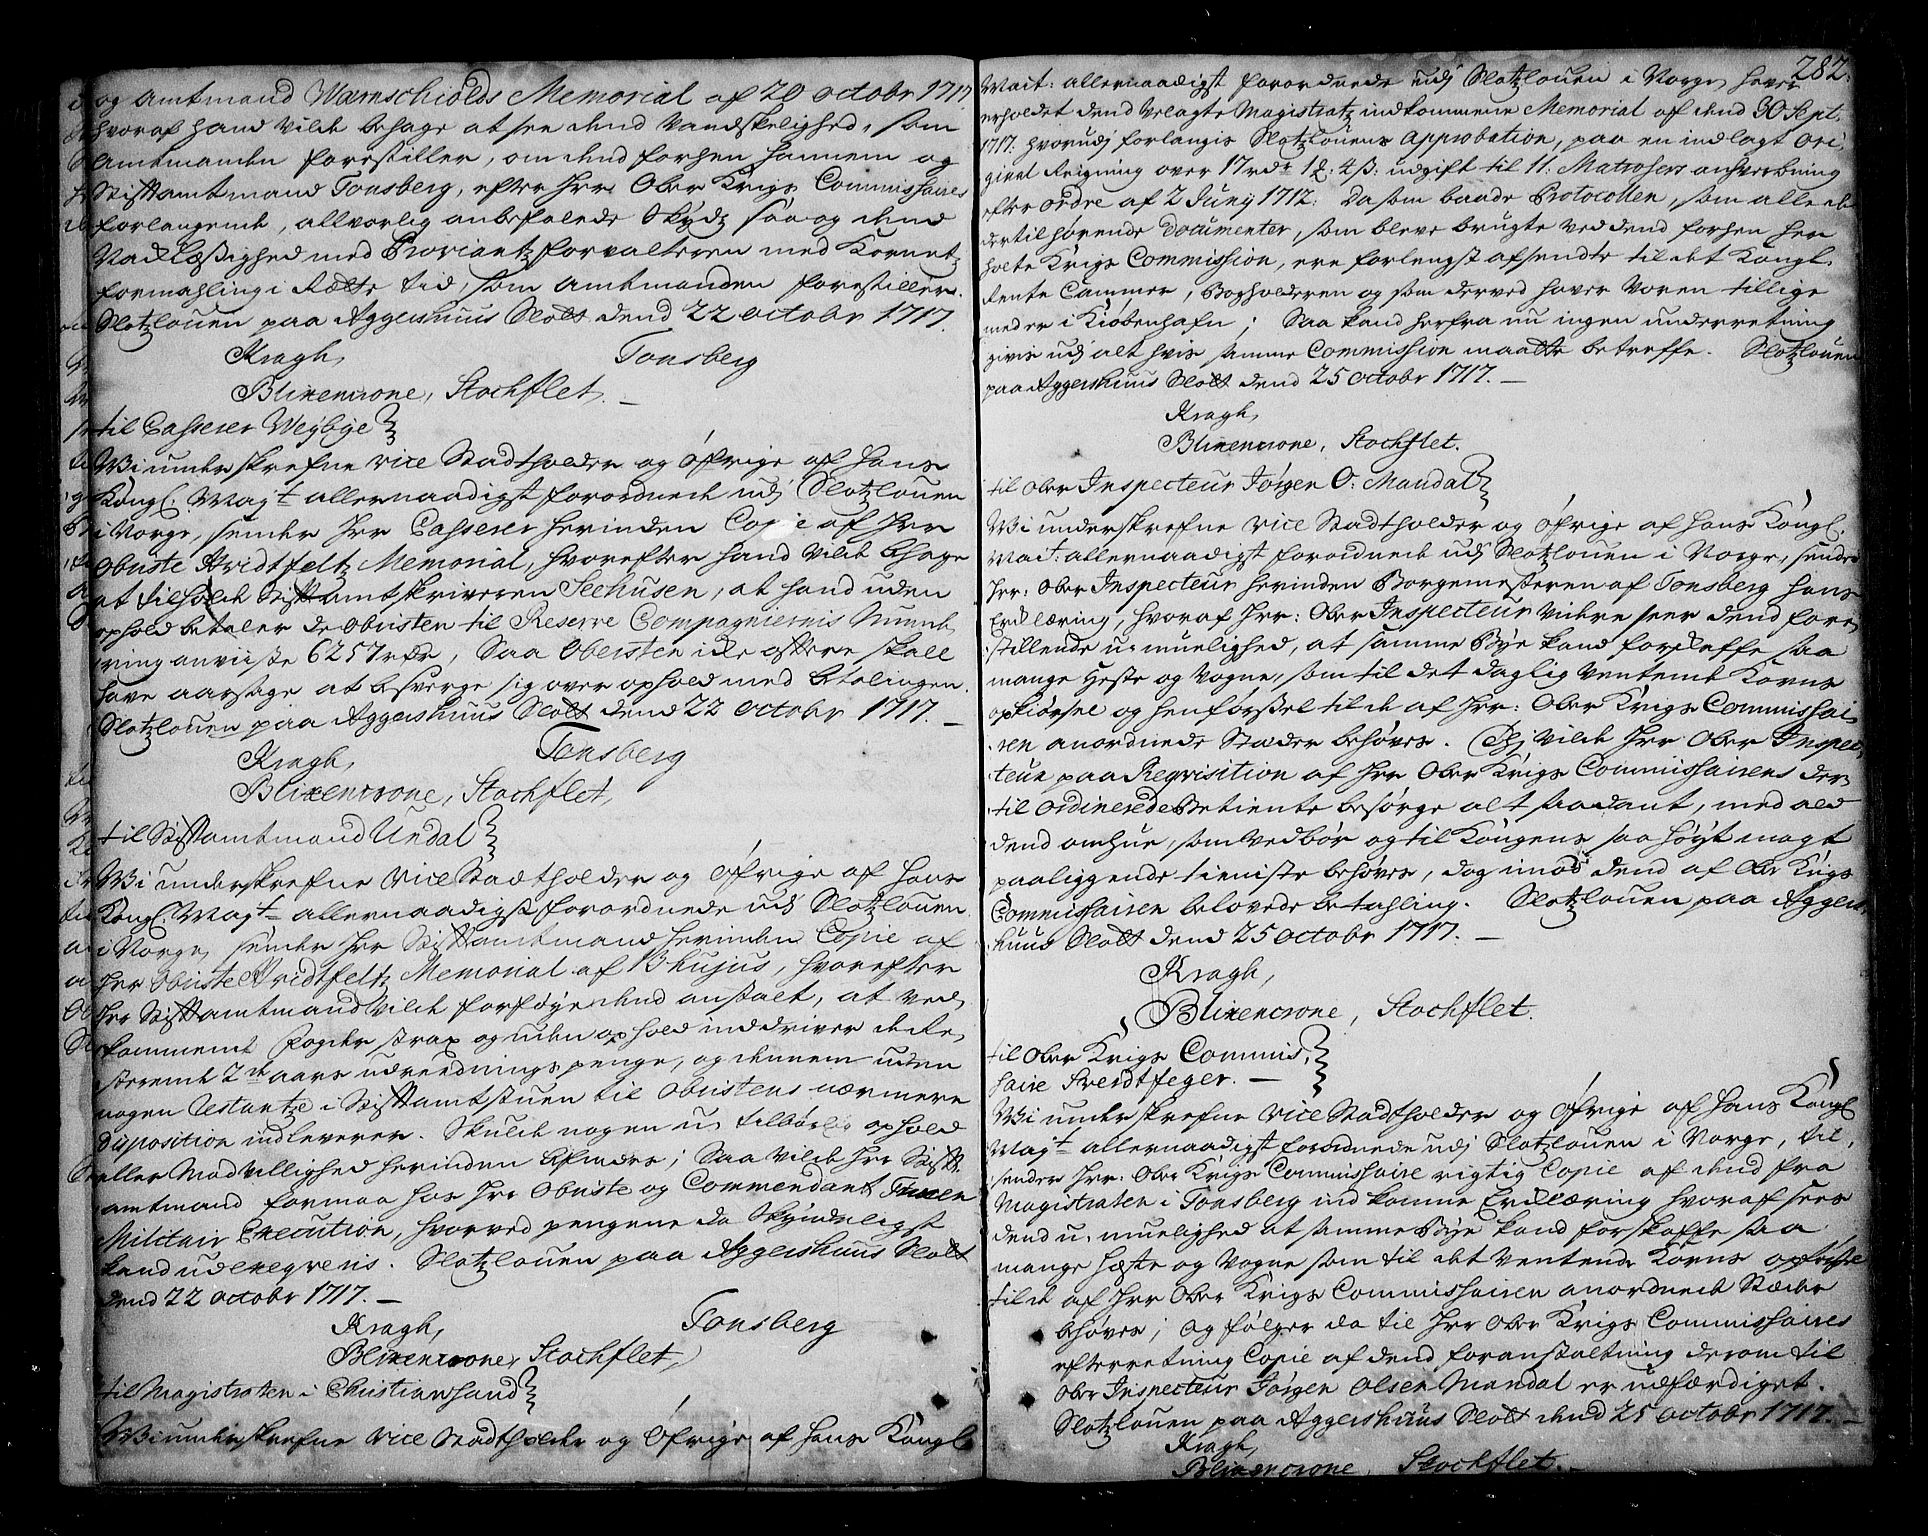 og Amtmand Warnschiolds Memorial af 20 octobr 1717
hvoraf hand vilde behage at see dend Vandskelighed, som
Amtmanden forestiller, om dend forhen hannem og
Stifftamtmand Tonsberg, efter Hrr Ober Krigs Commissairens
forlangende, alvorlig anbefalede Skydz saa og dend
Nachlæssighed med Proviantzforvalteren med Kornetz
formahling i Rætte tid, som Amtmanden forestiller.
Slotzlouen paa Aggershuus Slott dend 22 octobr 1717.
Kragh, Tonsberg
Blixencrone, Stochflet.
til Casserer Weybye
Wi underskrefne vice Stadtholder og øfrige af Hans
Kongl. Mayt allernaadigst forordnede udj Slotzlouen
i Norge, sender Hrr Casserer herinden Copie af Hrr
Obriste Hvidtfeltz Memorial, hvorefter hand vilde behage
at tilholde Stifftamtskriveren Seehusen, at hand uden
ophold betaler de Obristen til Reserve Compagniernis Mund-
ering anviiste 6257 rdr, saa Obersten icke oftere skall
have aarsage at besverge sig over ophold med betalingen.
Slotzlouen paa Aggershuus Slott dend 22 octobr 1717. -
Kragh, Tonsberg
Blixencrone, Stochflet,
til Stifftamtmand Undal
Wi underskrefne vice Stadtholder og øfrige af Hans
Kongl. Mayt allernaadigst forordnede udj Slotzlouen
i Norge, sender Hrr Stifftamtmand herinden Copie af
Hrr Obriste Hvidtfeltz Memorial af 13 hujus, hvorefter
Hrr Stifftamtmand vilde forføye dend anstalt, at ved-
kommende Fogder strax og uden ophold inddriver de re-
sterende 2de aars udrednings penge, og dennem uden
nogen Restantze i Stifftamtstuen til Obristens nærmere
disposition indleverer. Skulde nogen u-tilbørlig ophold
eller Modvillighed herinden befindes; saa vilde Hrr Stifft-
amtmand formaa hos Hrr Obriste og Commendant Tuxen
Militair Execution, hvorved pengene da skyndeligst
kand udexeqveris. Slotzlouen paa Aggershuus Slott
dend 22 octobr 1717. -
Kragh, Tonsberg
Blixencrone, Stochflet,
til Magistraten i Christiansand
Wi underskrefne vice Stadtholder og øfrige af Hans Kongl.
282.
Mait: allernaadigst forordnede udj Slotzlouen i Norge, hever
erholdet dend velagte Magistratz indkommene Memorial af dend 30 Sept.
1717. hvorudj forlangis Slotzlouens approbation, paa en indlagt ori-
ginal Reigning over 17 rdr 1 : 4 ß: udgift til 11. Matrosers anhverbning
efter ordre af 2 Juny 1712. Da som baade Protocollen, som alle de
dertil hørende documenter, som bleve brugte ved dend forhen her
holte Krigs Commission, ere forlengst afsendte til det Kongl.
Rente Cammer, Bogholderen og som derved haver været tillige
med er i Kiøbenhafn; Saa kand herfra nu ingen underretning
givis udj alt hvis samme Commission maatte betreffe. Slotzlouen
paa Aggershuus Slott dend 25 octobr 1717. -
Kragh,
Blixencrone, Stochflet.
til Ober Inspecteur Jørgen O: Mandal
Wi underskrefne vice Stadtholder og øfrige af Hans Kongl.
Mait: allernaadigst forordnede udj Slotzlouen i Norge, sender
Hrr: Ober Inspecteur herinden Borgemesteren af Tonsberg hans
Erklæring, hvoraf Hrr: Ober Inspecteur videre seer dend fore-
stillende u-muelighed, at samme Bye kand forskaffe saa
mange Heste og Vogne, som til det daglig ventende Korns
opkiørsel og henførsel til de af Hrr: Ober Krigs Commissai-
ren anordnede Stæder behøves. Thj vilde Hrr Ober Inspec-
teur paa Reqvisition af Hrr Ober Krigs Commissairens der-
til ordinerede Betiente besørge alt saadant, med ald
dend omhue, som vedbør og til Kongens saa høyt magt
paaliggende tieniste behøves, dog imod dend af Ober Krigs
Commissairen belovede betahling. Slotzlouen paa Aggers-
huus Slott dend 25 octobr 1717. -
Kragh,
Blixencrone, Stochflet.
til Ober Krigs Commis-
saire Sverdtfeger. -
Wi underskrefne vice Stadtholder og øfrige af Hans Kongl.
Mayt allernaadigst forordnede udj Slotzlouen i Norge, til-
sender Hrr: Ober Krigs Commissaire rigtig Copie af dend fra
Magistraten i Tonsberg indkomne Erklæring hvoraf sees
dend u-muelighed at samme Bye kand forskaffe saa
mange Hæste og Vogne som til det ventende Korns opførsel
til de af Hrr Ober Krigs Commissairen anordnede Stæder
behøves; og følger da til Hrr Ober Krigs Commissaires
efterretning Copie af dend foranstaltning derom til
Ober Inspecteur Jørgen Olsen Mandal er udfærdiget.
Slotzlouen paa Aggershuus Slott dend 25 octobr 1717. -
Kragh,
Blixencrone, Stochflet. -